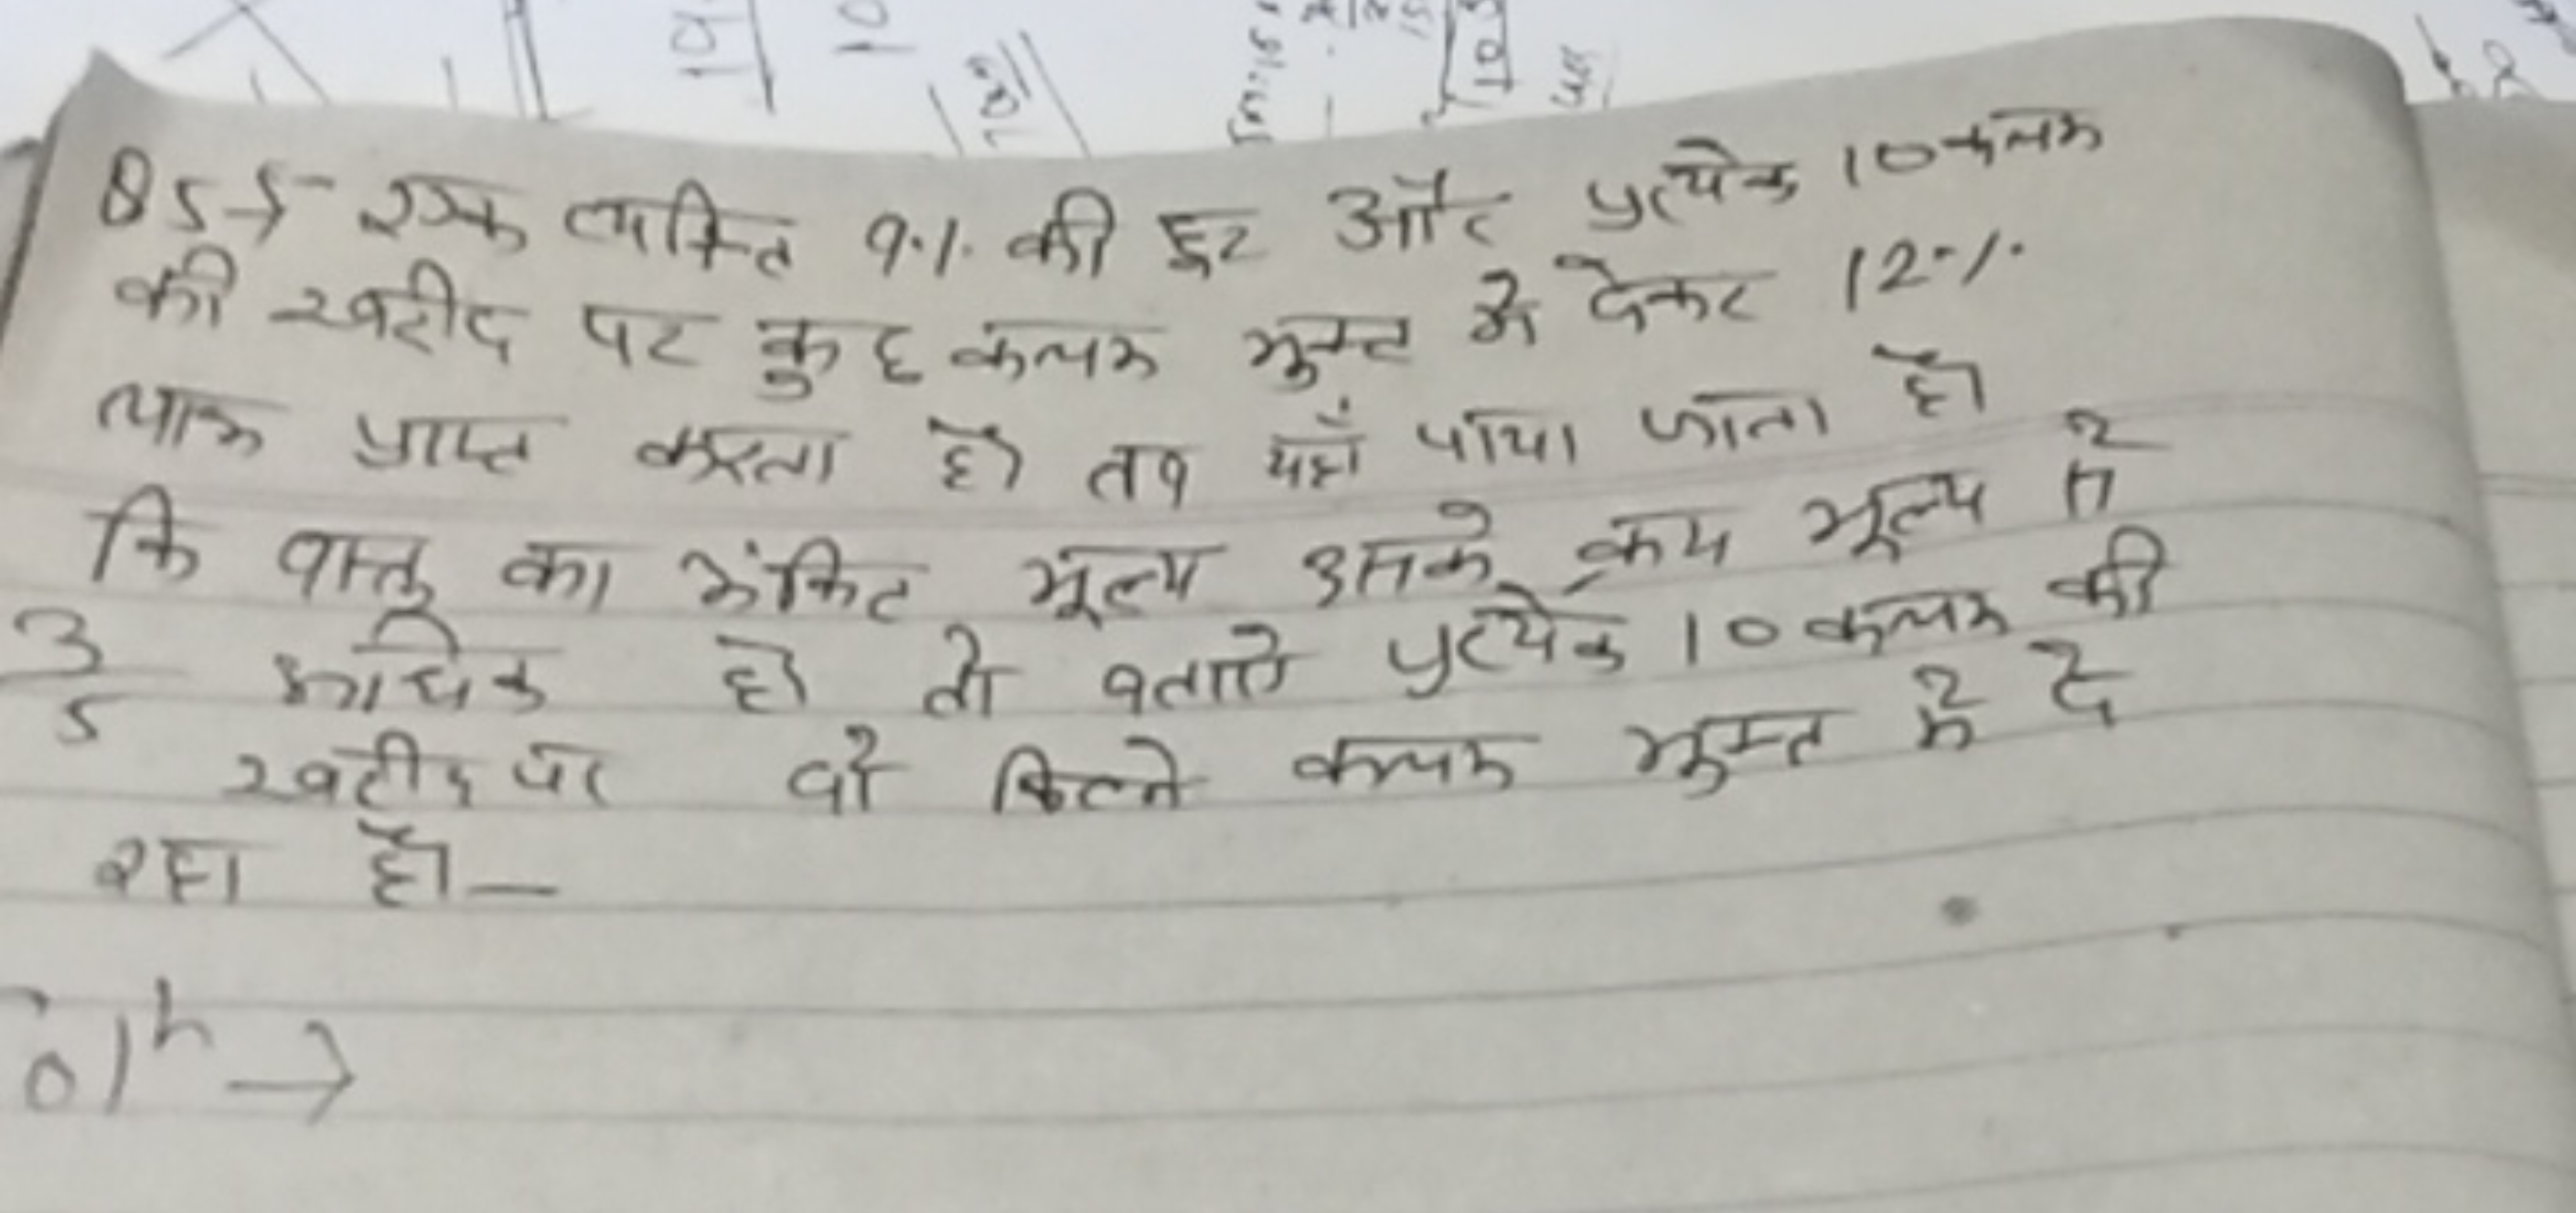 Q5→ एक व्यक्ति 9% की छूट और प्रत्येक 10 कलम
की खरीद पर कुछ कलम मुफ्त में देकर 12%
लाभ प्राप्त करता है। तब यहाँ पाया जाता है।
कि वास्तु का अंकित मूल्य उसके क्रय मूल्य से
3/5 अधिक है। तो बताऐ प्रत्येक 10 कलम की
खरीद पर वो कितने कलम मुफ्त में दे
रहा है।—
olh →